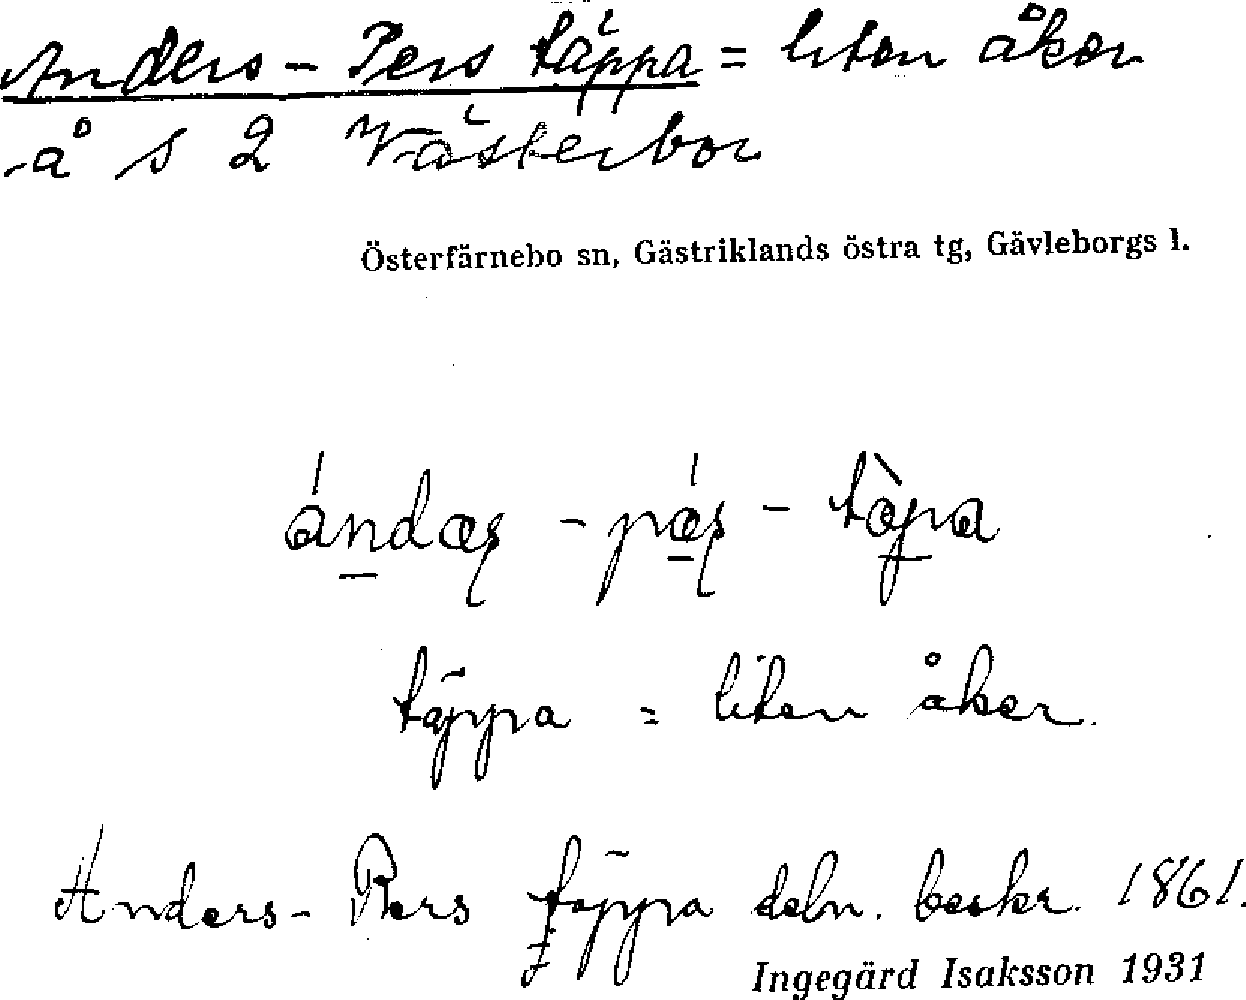 Anders-Pers täppa = liten åker
å s 2 Västerbor
Österfärnebo sn, Gästriklands östra tg, Gävleborgs l.
täppa = liten åker.
Anders-Pers täppa deln. beskr. 1861.
Ingegärd Isaksson 1931